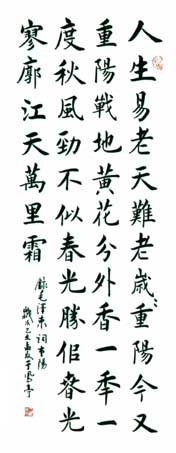 人生易老天難老歲〻重陽今又
重陽戰地黃花分外香一秊一
度秋風勁不似春光勝佀春光
寥廓江天萬里霜
錄毛澤東詞重陽
己丑